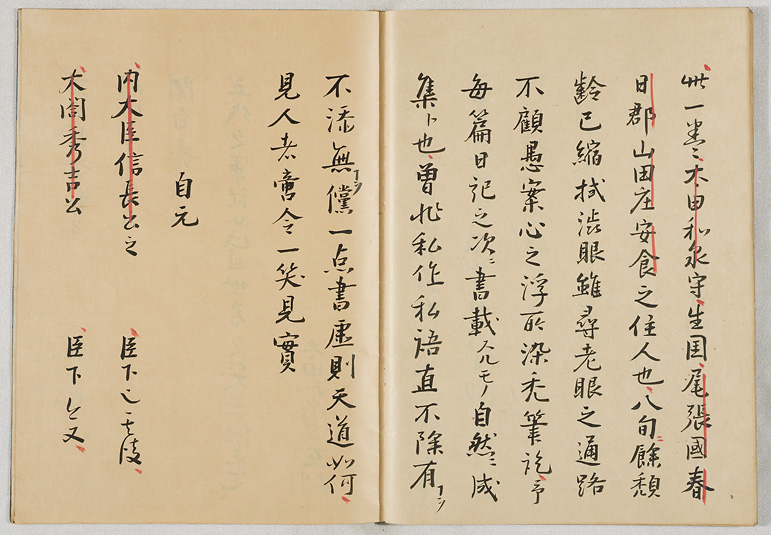 此一巻ミ太田和泉守生国尾張國春
日郡山田庄安食之住人也八旬ニ餘頽
齢已縮拭渋眼雖尋老眼之通路
不顧愚案心之浮所染禿筆訖予
毎篇日記之次ニ書載スルモノ自然ニ成
集ト也曽非私作私語直不除有ヲ
不添無ヲ儻一点書虚則天道如何
見人者啻令一笑見實
自元
内大臣信長公之 臣下也其後
太閤秀吉公 臣下今又